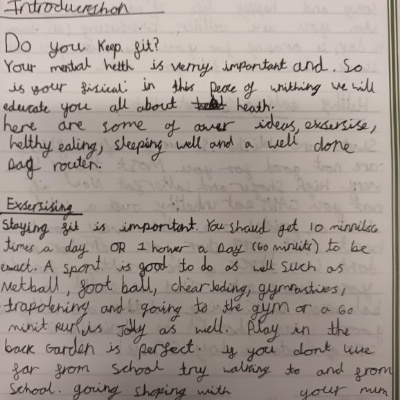 Introducrshon
Do you keep fit?
Your mental helth is verry important and. So
is your fisicali in this peace of whithing we will
educate you all about heath.
here are some of ower ideas, exsersise,
helthy eating, sleeping well and a well done
Day router.
Exsersising
Staying fit is important. You should get 10 minnites
times a day OR 1 hower a Day (60 minuits) to be
exact. A sport is good to do as well such as
netball, foot ball, chearleding, gymnastics,
trapolening and going to the gym or a 60
minit run is Jolly as well. Play in the
back Garden is perfect. if you dont live
far from School try walking to and from
School. going shoping with your mum